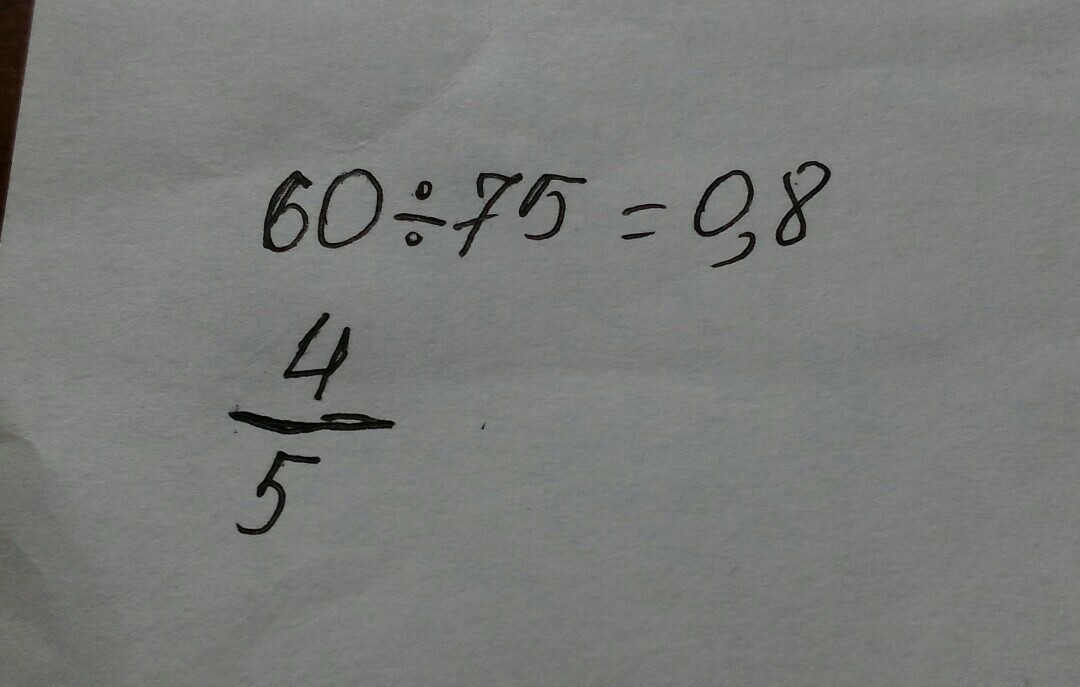 60÷75=0,8
4
5